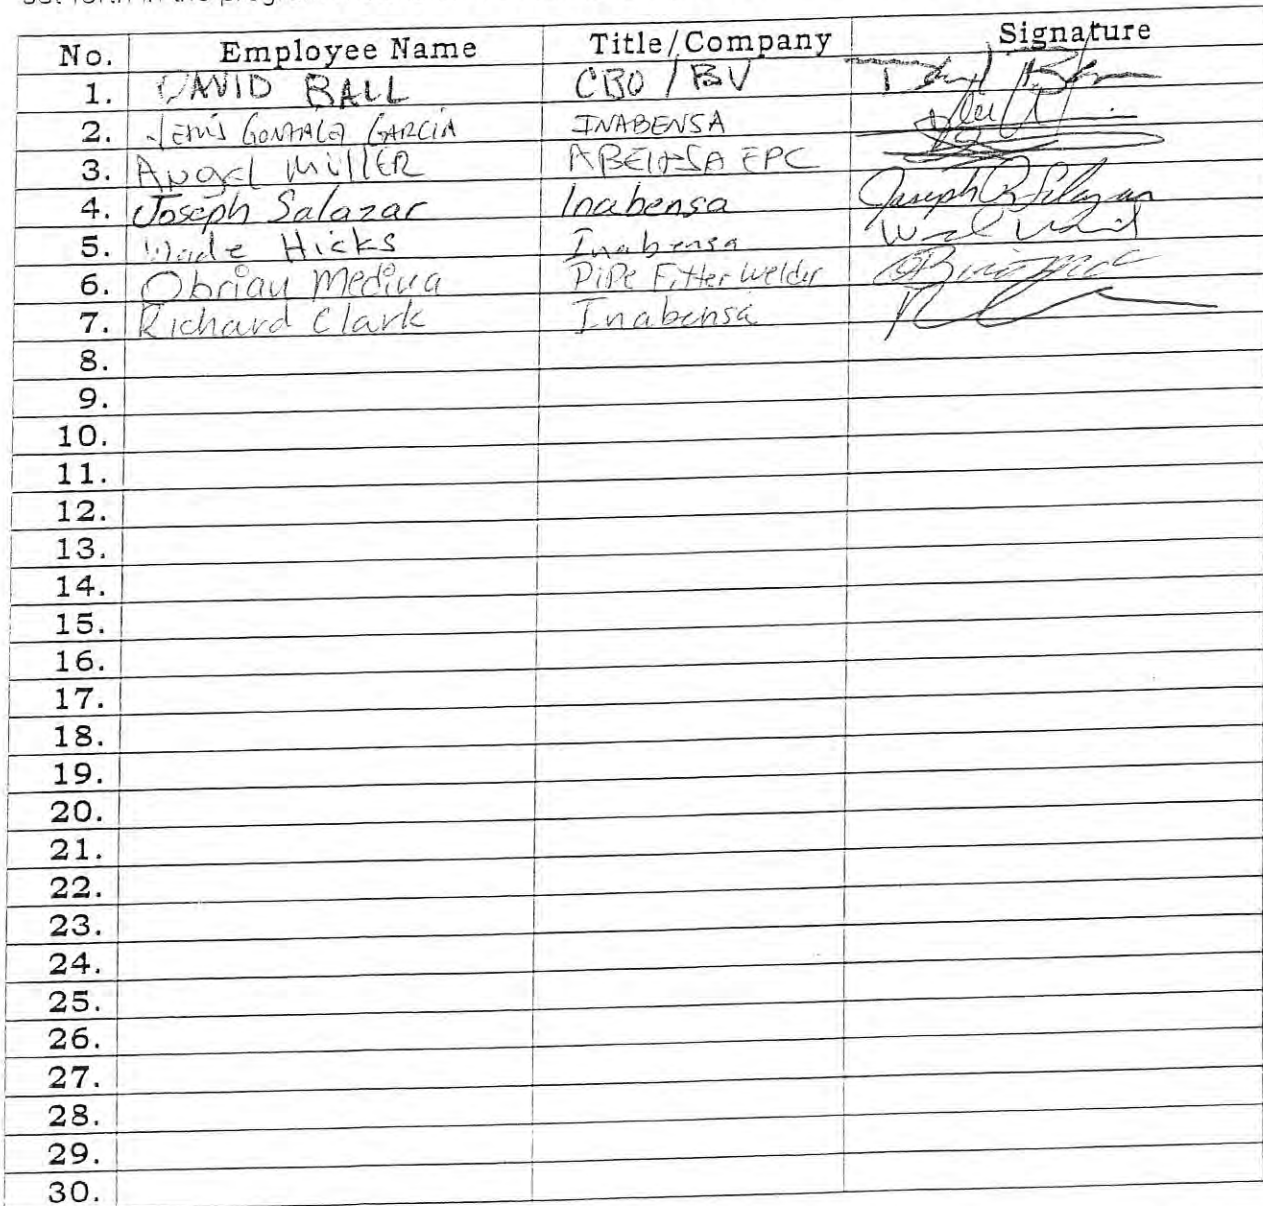 set forth in the
No. Employee Name Title/Company Signature
1. DAVID BALL CBO / BV
2. GONZALEZ GARCIA INABENSA
3. Angel MillER ABEINSA EPC
4. Joseph Salazar Inabensa Joseph R Salazar
5. Wade Hicks Inabensa
6. Obrian Medina PiPe Fitter Welder
7. Richard Clark Inabensa
8.
9.
10.
11.
12.
13.
14.
15.
16.
17.
18.
19.
20.
21.
22.
23.
24.
25.
26.
27.
28.
29.
30.